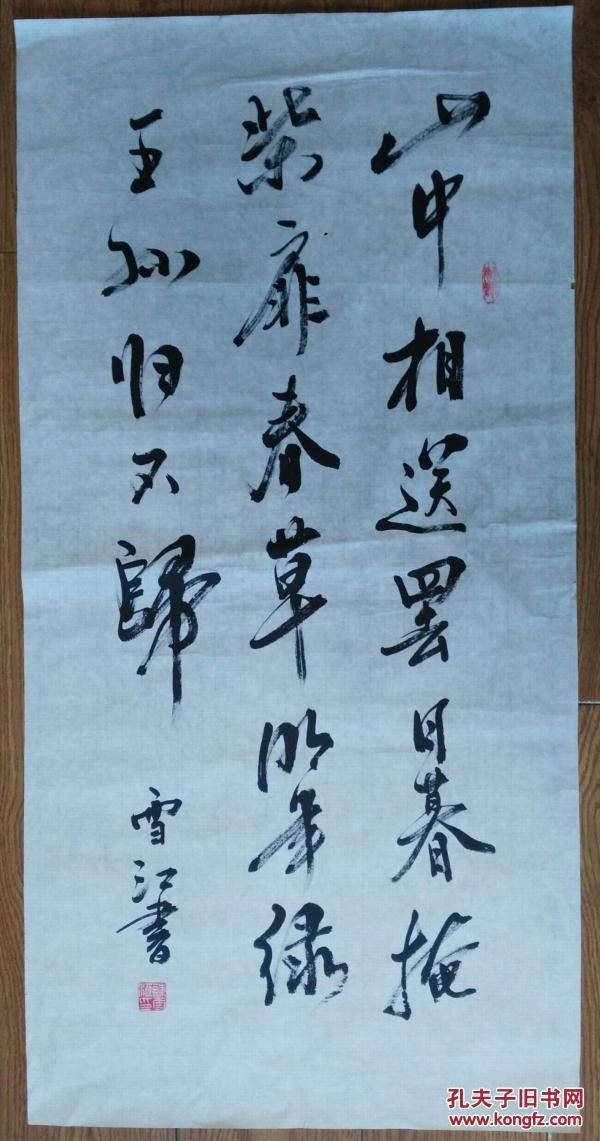 山中相送罢日暮掩
柴扉春草明年绿
王孙归不歸
雪江書
孔夫子旧书网
www.kongfz.com